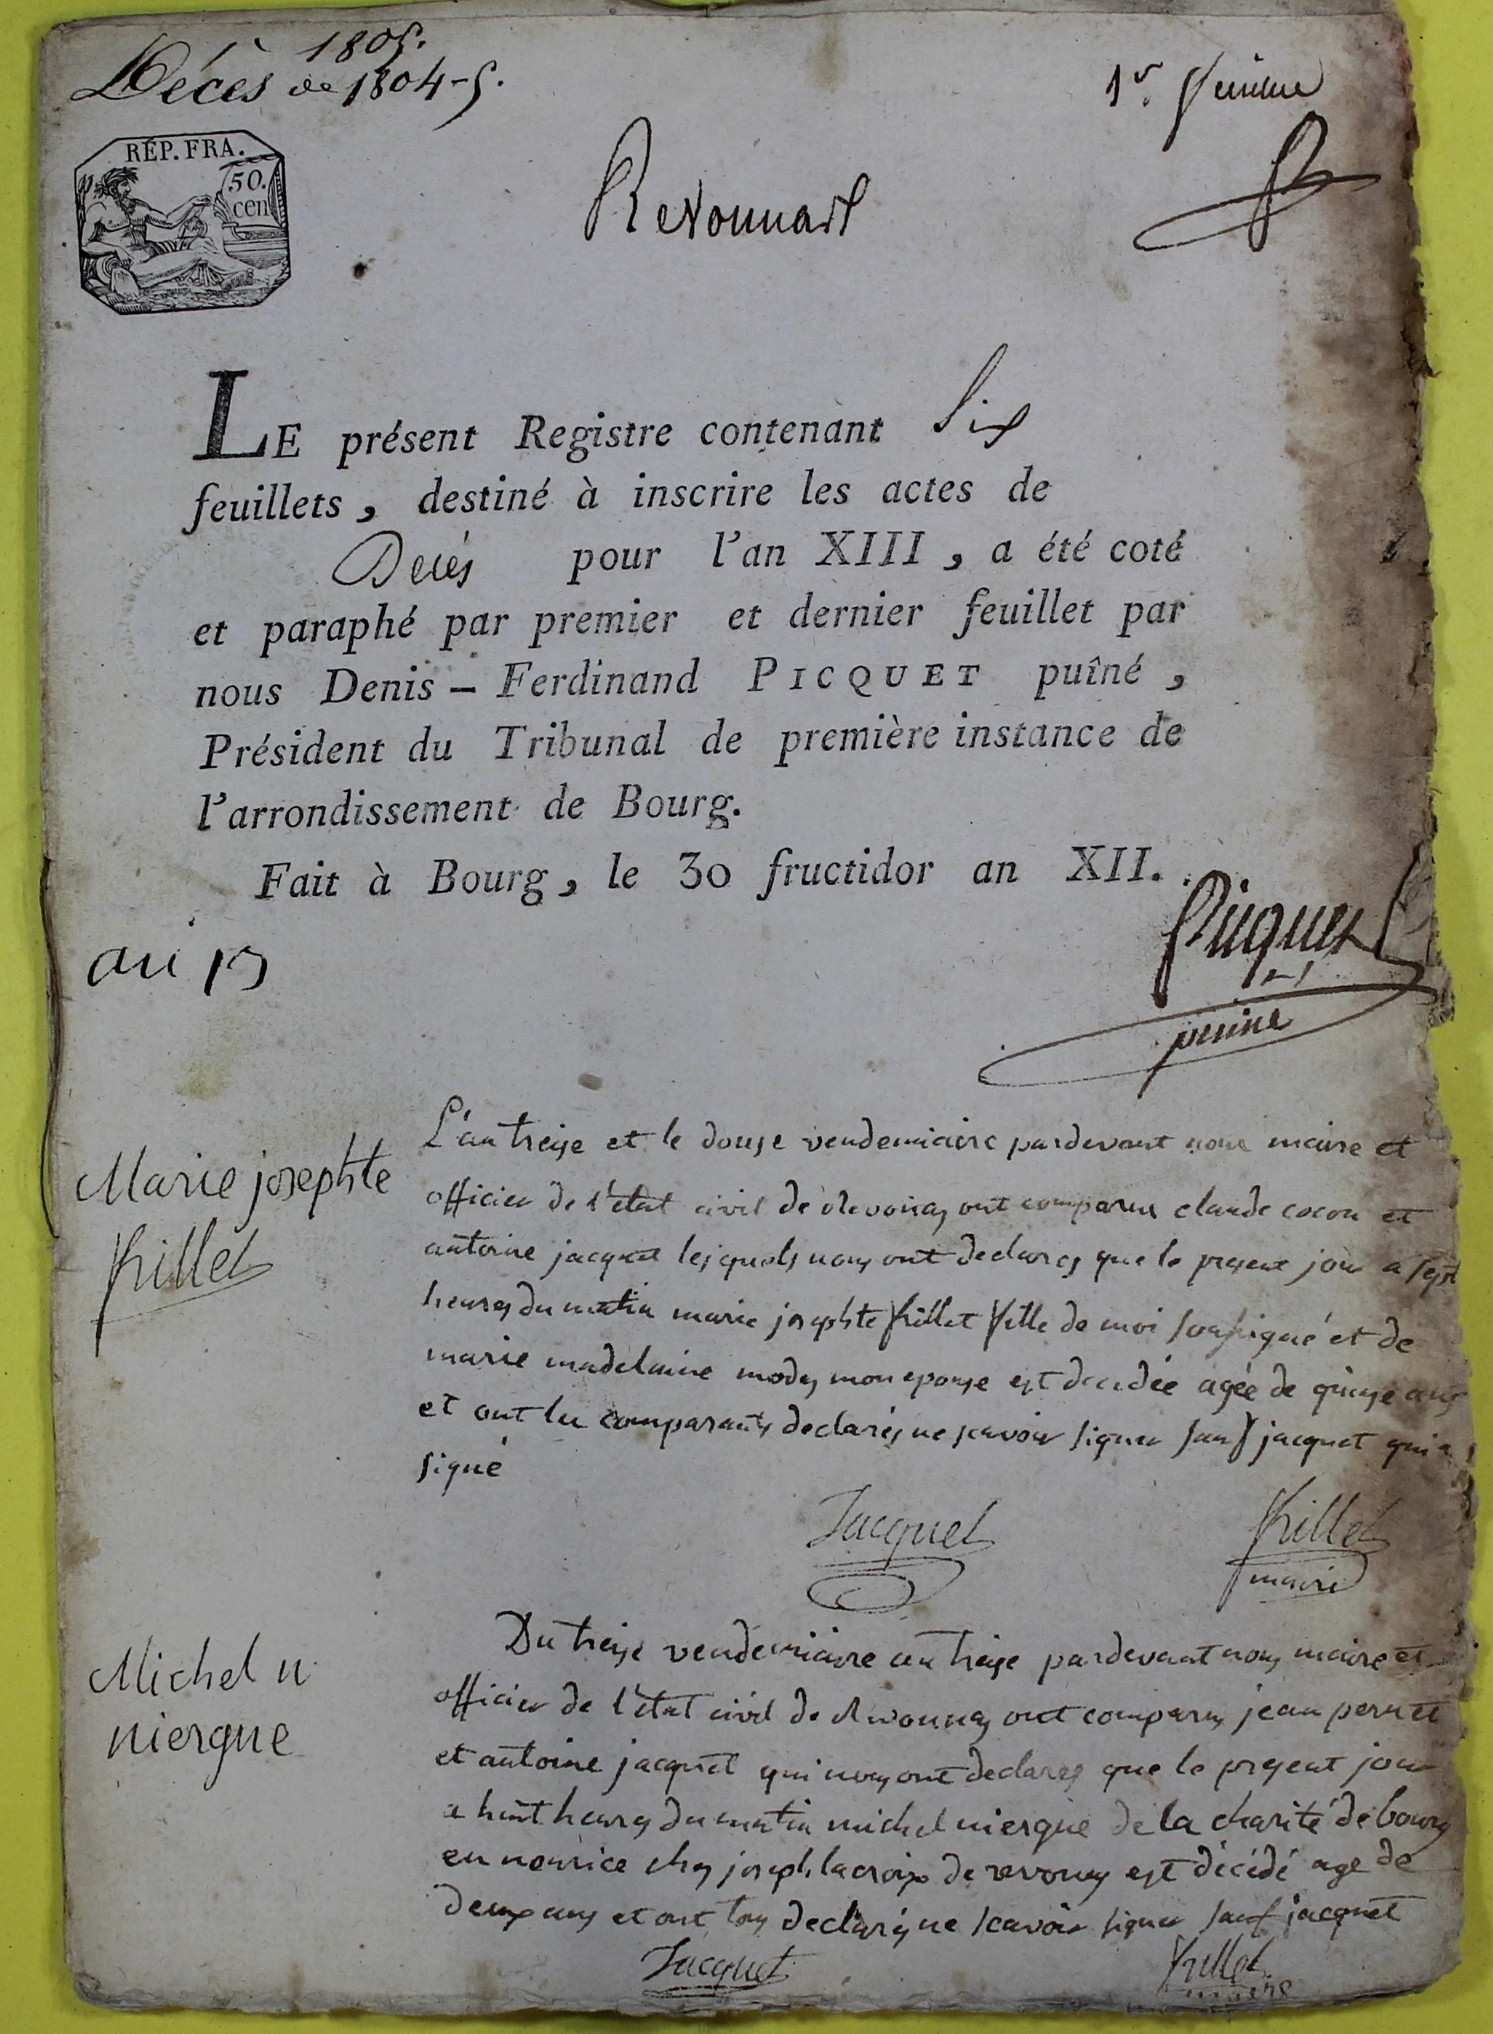 1805.
Décès de 1804-5.
1er feuillet
RÉP. FRA.
50.
cen
Revonnas
LE présent Registre contenant Six
feuillets, destiné à inscrire les actes de
Décès pour l'an XIII, a été coté
et paraphé par premier et dernier feuillet par
nous Denis-Ferdinand PICQUET puîné,
Président du Tribunal de première instance de
l'arrondissement de Bourg.
Fait à Bourg, le 30 fructidor an XII.
Picquet
puîné
an 13
Marie josephte
frillet
L'an treise et le douse vendemiaire pardevant nous maire et
officier de l'état civil de revonas ont comparus claude cocon et
antoine jacquet lesquels nous ont declarés que le present jour a sept
heures du matin marie josephte frillet fille de moi soussigné et de
marie madelaine modas mon epouse est decedée agée de quinse ans
et ont les comparants declarés ne scavoir signer sauf jacquet qui a
signé
Jacquet
frillet
maire
Michel n
niergue
Du treise vendemiaire an treise pardevant nous maire et
officier de l'état civil de revonnas ont comparus jean pernet
et antoine jacquet qui nous ont declarés que le present jour
a huit heures du matin michel niergue de la charité de bourg
en nourice chez joseph lacroix de revonas est décédé age de
deux ans et ont tous declarés ne scavoir signer sauf jacquet
Jacquet
frillet
maire